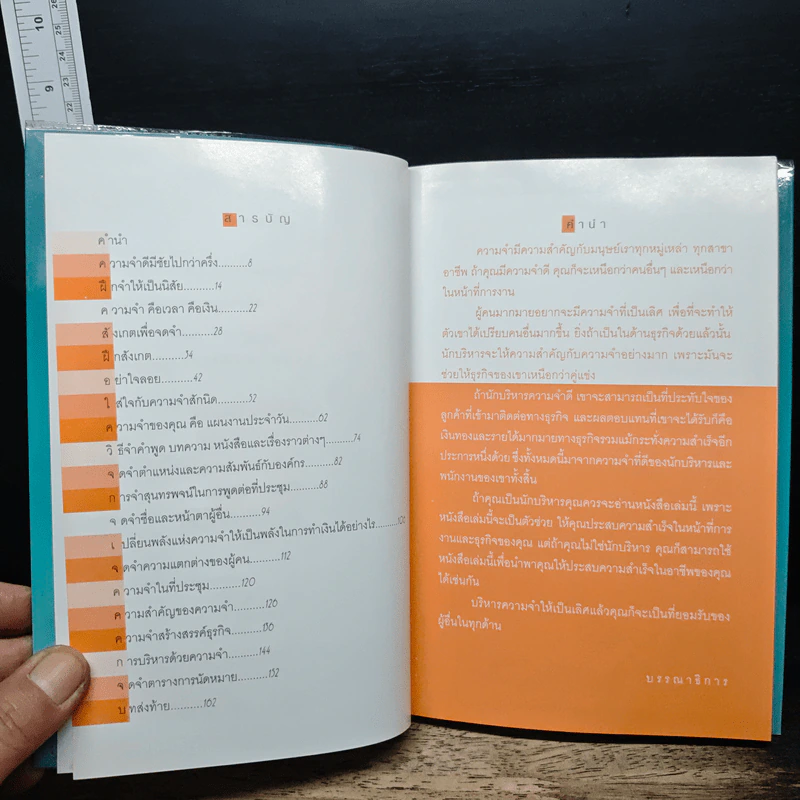 10
25
24
23
9
22
สารบัญ
คำนำ
ความจำดีมีชัยไปกว่าครึ่ง..........8
ฝึกจำให้เป็นนิสัย..........14
ความจำ คือเวลา คือเงิน..........22
สังเกตเพื่อจดจำ..........28
ฝึกสังเกต..........34
อย่าใจลอย..........42
ใส่ใจกับความจำสักนิด..........52
ความจำของคุณ คือ แผนงานประจำวัน..........62
วิธีจำคำพูด บทความ หนังสือและเรื่องราวต่างๆ..........74
จดจำตำแหน่งและความสัมพันธ์กับองค์กร..........82
การจำสุนทรพจน์ในการพูดต่อที่ประชุม..........88
จดจำชื่อและหน้าตาผู้อื่น..........94
เปลี่ยนพลังแห่งความจำให้เป็นพลังในการทำเงินได้อย่างไร..........
จดจำความแตกต่างของผู้คน..........112
ความจำในที่ประชุม..........120
ความสำคัญของความจำ..........126
ความจำสร้างสรรค์ธุรกิจ..........136
การบริหารด้วยความจำ..........144
จดจำตารางการนัดหมาย..........152
บทส่งท้าย..........162
คำนำ
ความจำมีความสำคัญกับมนุษย์เราทุกหมู่เหล่า ทุกสาขา
อาชีพ ถ้าคุณมีความจำดี คุณก็จะเหนือกว่าคนอื่นๆ และเหนือกว่า
ในหน้าที่การงาน
ผู้คนมากมายอยากจะมีความจำที่เป็นเลิศ เพื่อที่จะทำให้
ตัวเขาได้เปรียบคนอื่นมากขึ้น ยิ่งถ้าเป็นในด้านธุรกิจด้วยแล้วนั้น
นักบริหารจะให้ความสำคัญกับความจำอย่างมาก เพราะมันจะ
ช่วยให้ธุรกิจของเขาเหนือกว่าคู่แข่ง
ถ้านักบริหารความจำดี เขาจะสามารถเป็นที่ประทับใจของ
ลูกค้าที่เข้ามาติดต่อทางธุรกิจ และผลตอบแทนที่เขาจะได้รับก็คือ
เงินทองและรายได้มากมายทางธุรกิจรวมแม้กระทั่งความสำเร็จอีก
ประการหนึ่งด้วย ซึ่งทั้งหมดนี้มาจากความจำที่ดีของนักบริหารและ
พนักงานของเขาทั้งสิ้น
ถ้าคุณเป็นนักบริหารคุณควรจะอ่านหนังสือเล่มนี้ เพราะ
หนังสือเล่มนี้จะเป็นตัวช่วย ให้คุณประสบความสำเร็จในหน้าที่การ
งานและธุรกิจของคุณ แต่ถ้าคุณไม่ใช่นักบริหาร คุณก็สามารถใช้
หนังสือเล่มนี้เพื่อนำพาคุณให้ประสบความสำเร็จในอาชีพของคุณ
ได้เช่นกัน
บริหารความจำให้เป็นเลิศแล้วคุณก็จะเป็นที่ยอมรับของ
ผู้อื่นในทุกด้าน
บรรณาธิการ